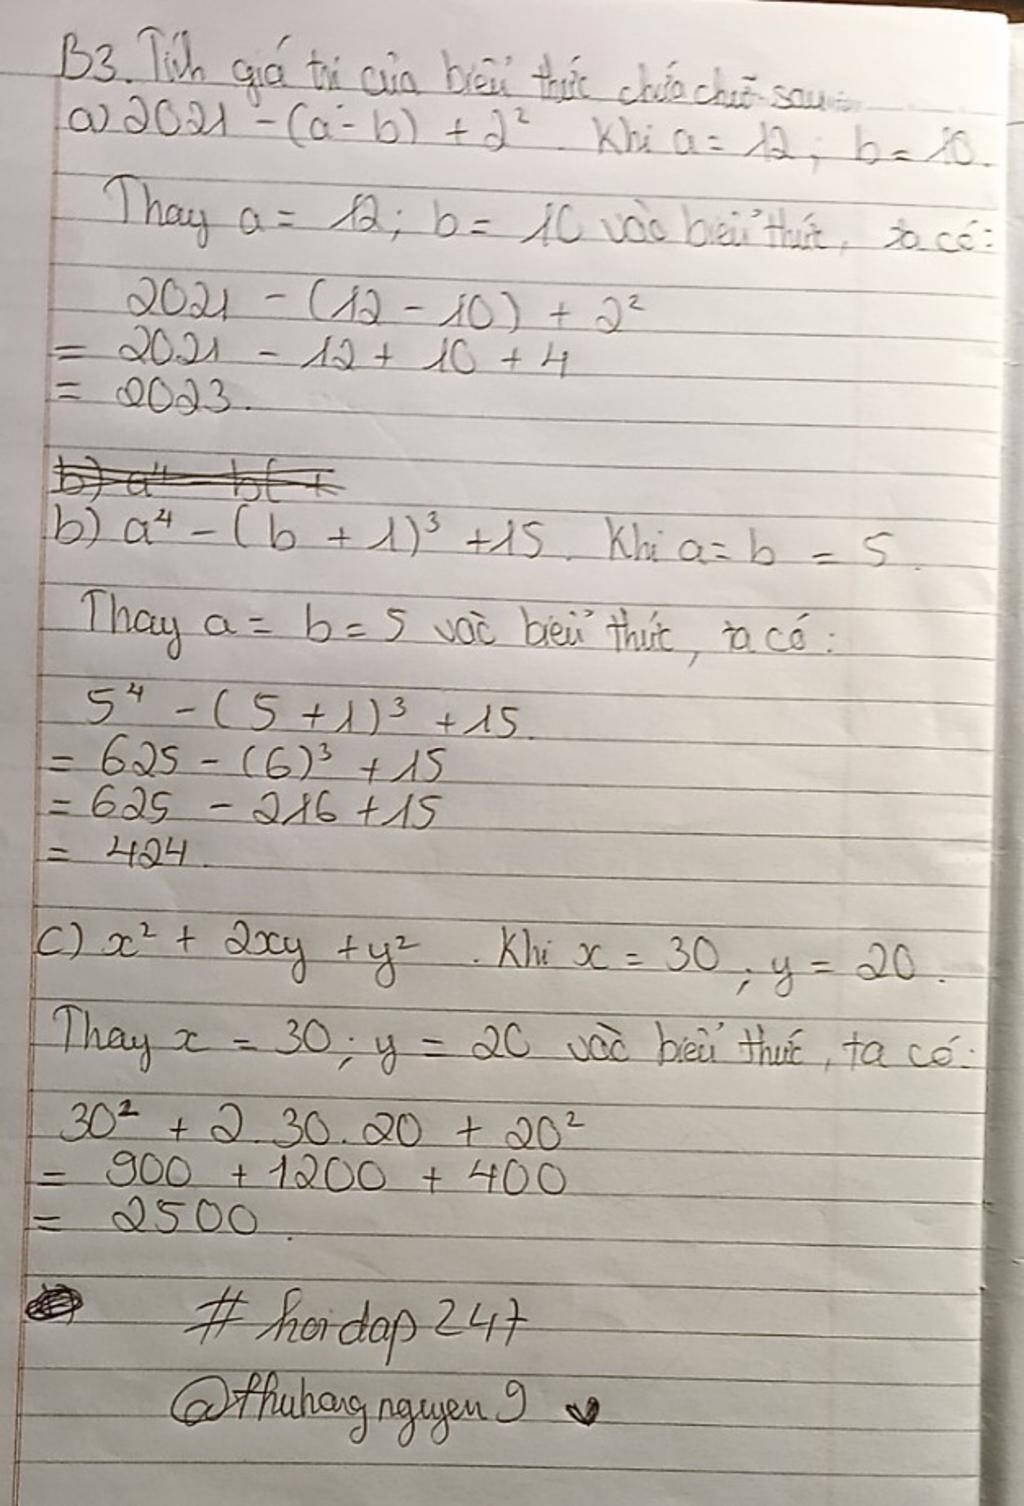 B3. Tính giá trị của biểu thức chứa chữ sau:
a) 2021 - (a - b) + 2². Khi a = 12; b = 10.
Thay a = 12; b = 10 vào biểu thức, ta có:
2021 - (12 - 10) + 2²
= 2021 - 12 + 10 + 4
= 2023.
b) a⁴ - b( +
b) a⁴ - (b + 1)³ + 15. Khi a = b = 5.
Thay a = b = 5 vào biểu thức, ta có:
5⁴ - (5 + 1)³ + 15.
= 625 - (6)³ + 15
= 625 - 216 + 15
= 424.
c) x² + 2xy + y². Khi x = 30; y = 20.
Thay x = 30; y = 20 vào biểu thức, ta có:
30² + 2.30.20 + 20²
= 900 + 1200 + 400
= 2500.
# hoidap247
@thuhangnguyen9